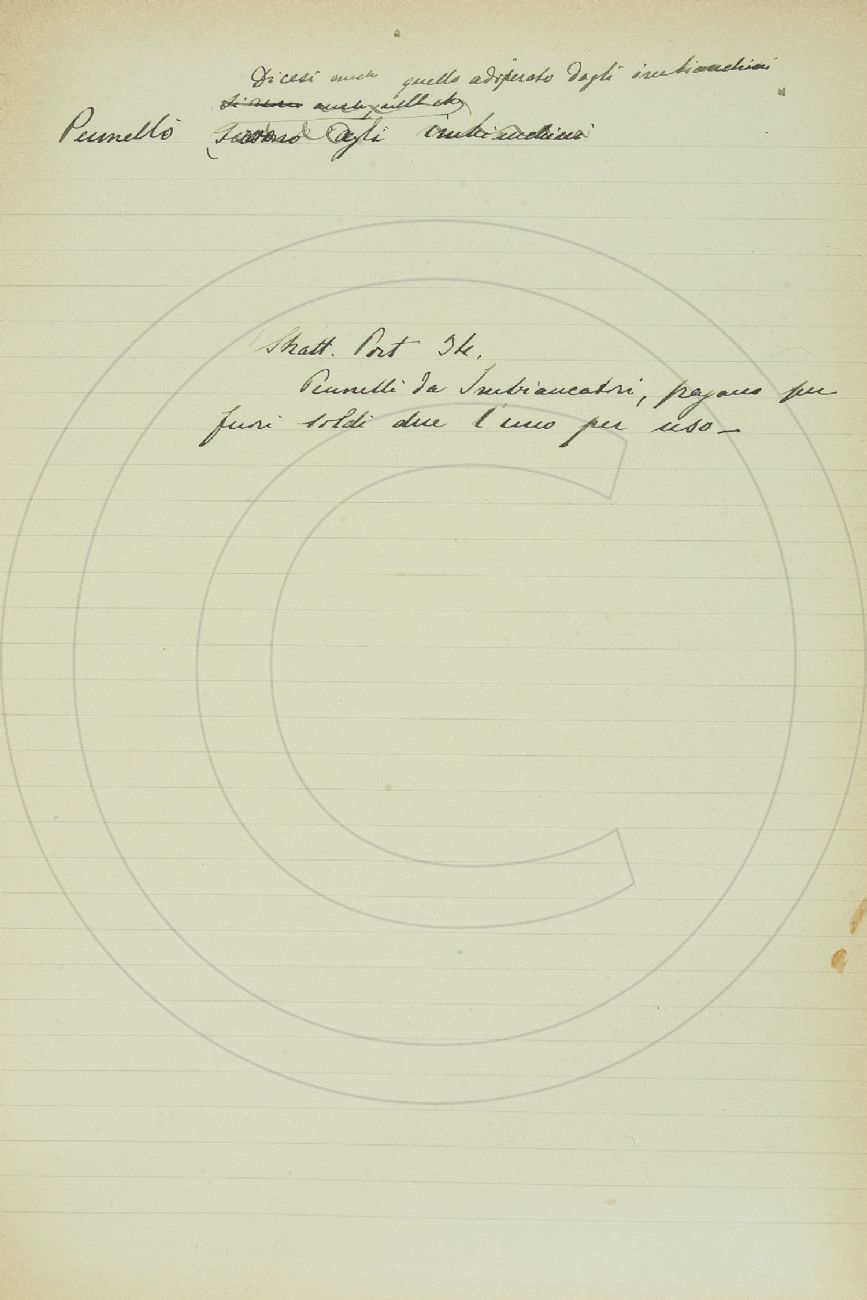 Dicesi anche quello adoperato dagli imbianchini
anche
Pennello agli imbianchini
Stratt. Port 34.
Pennelli da Imbiancatori, pagano per
fuori soldi due l'uno per uso_